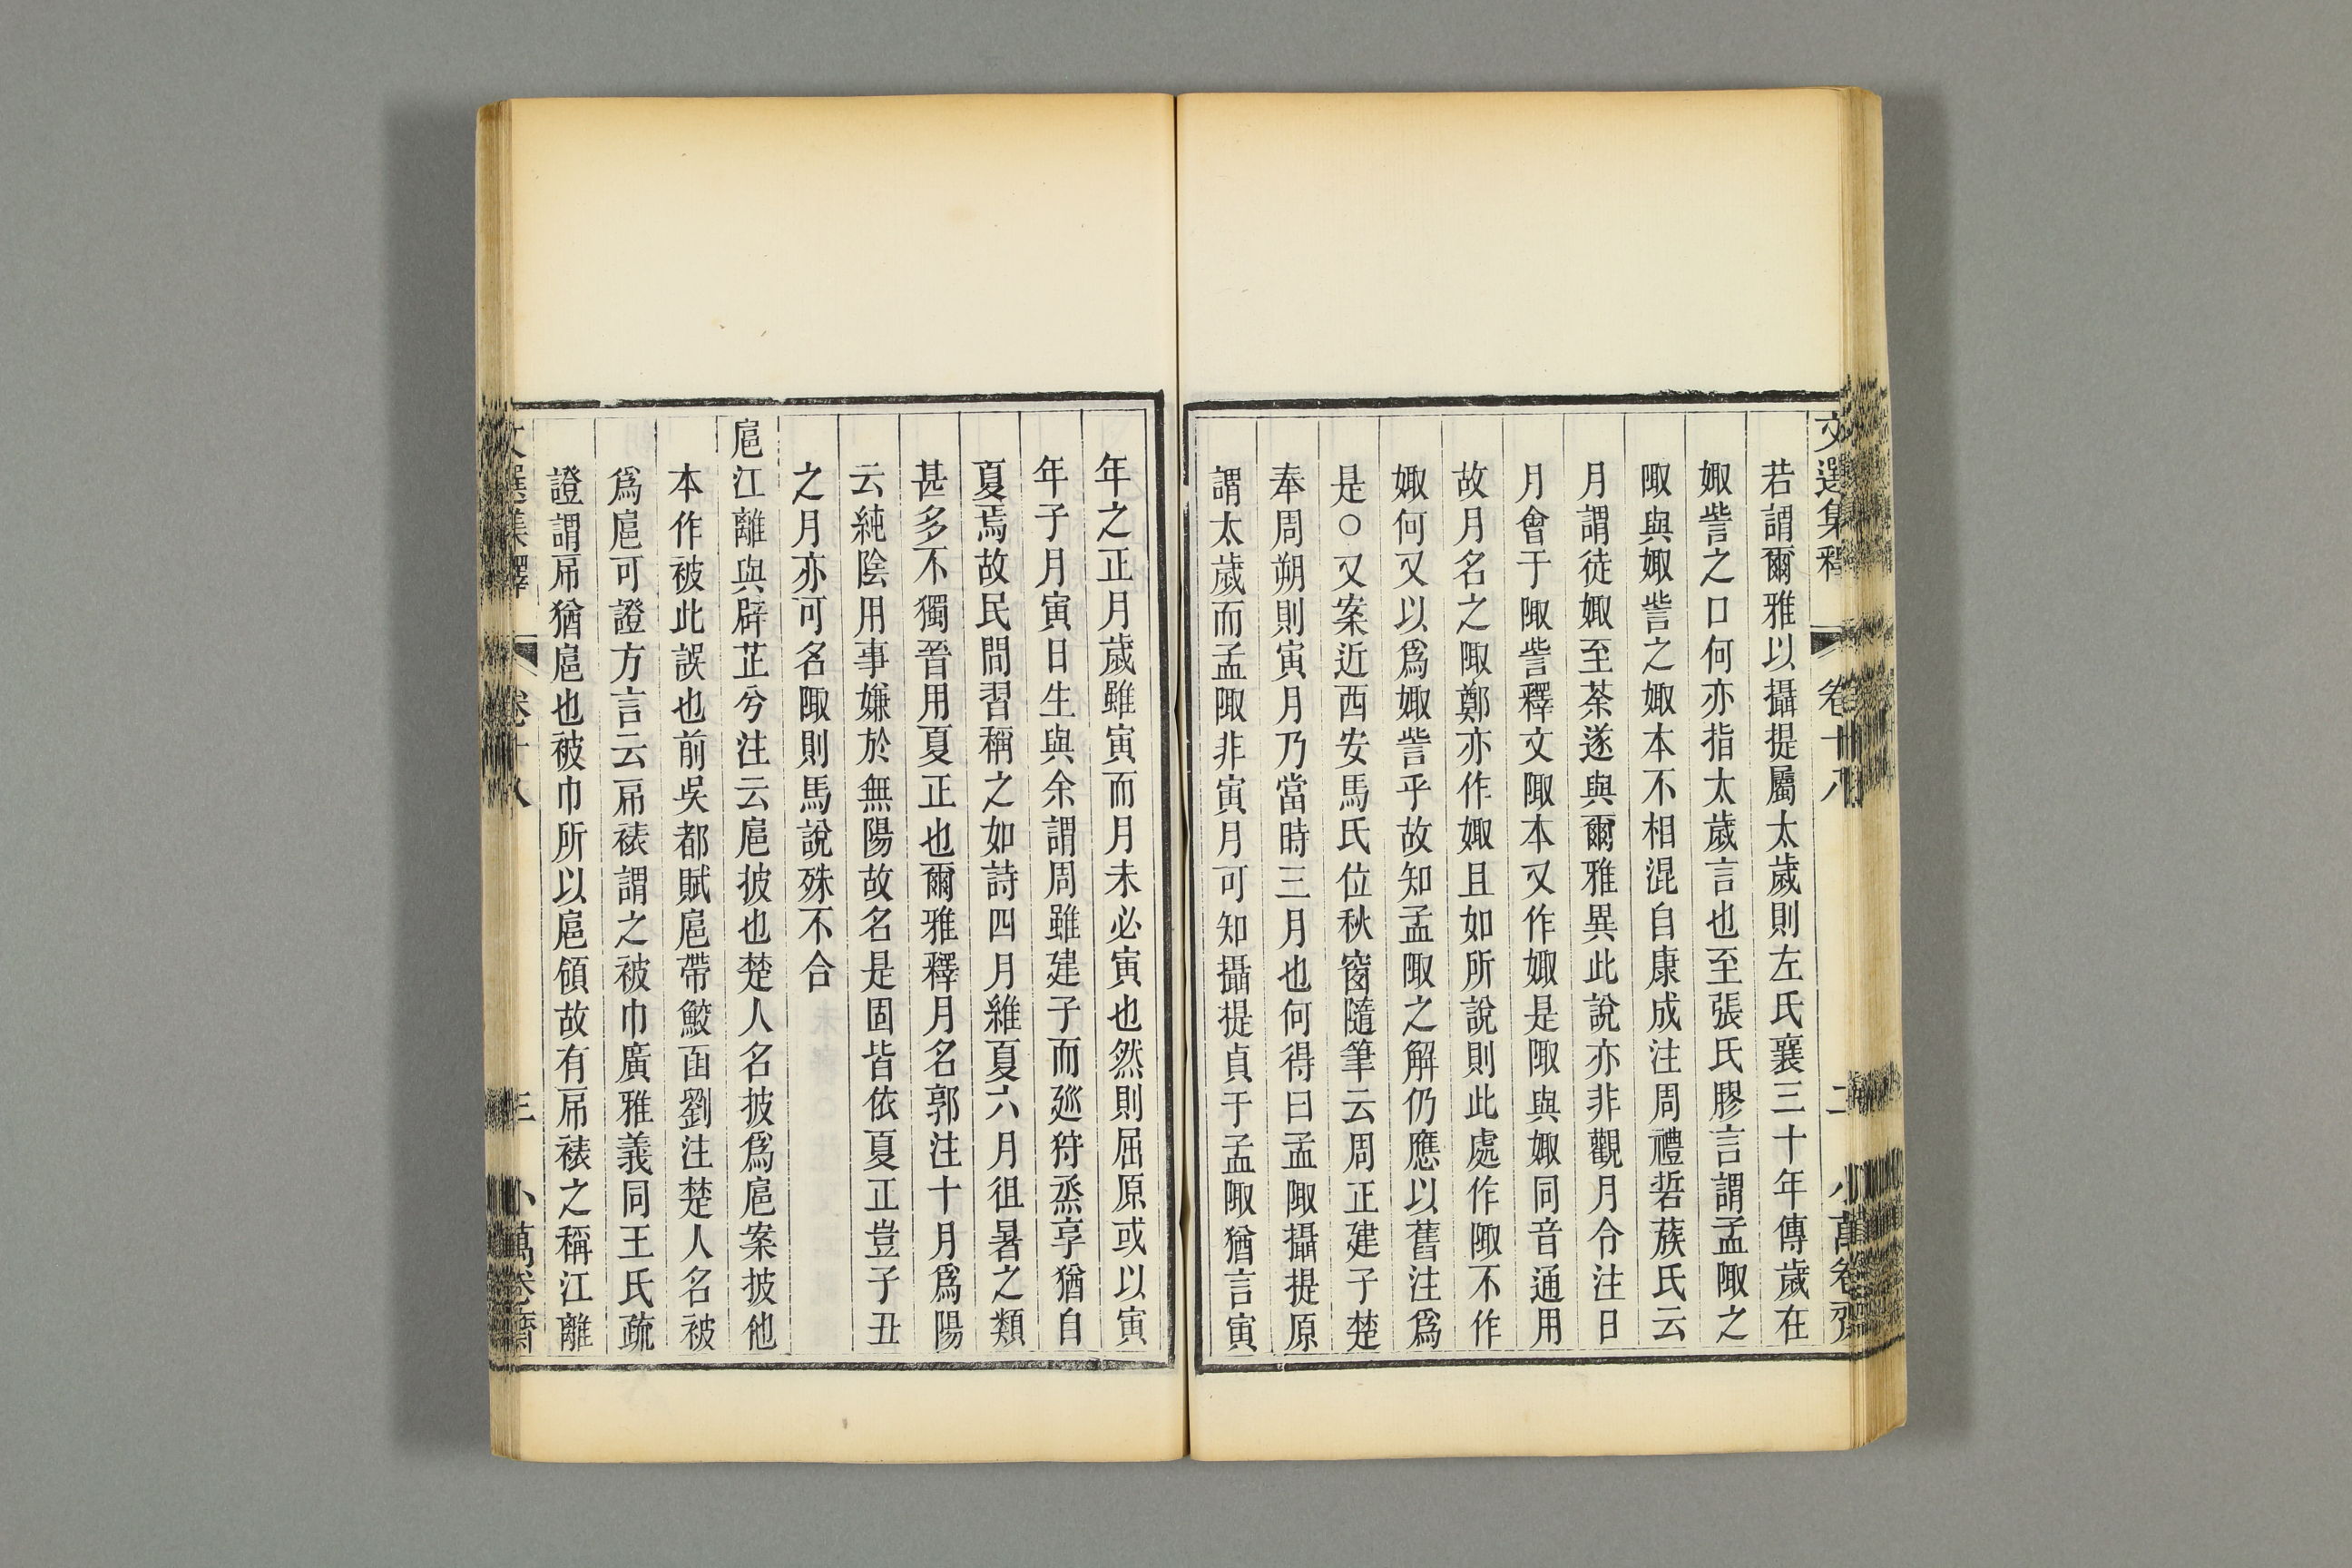 文選集釋 卷十八 二 小萬卷齋
若謂爾雅以攝提屬太歲則左氏襄三十年傳歲在
娵訾之口何亦指太歲言也至張氏膠言謂孟陬之
陬與娵訾之娵本不相混自康成注周禮硩蔟氏云
月謂徒娵至荼遂與爾雅異此說亦非觀月令注日
月會于陬訾釋文陬本又作娵是陬與娵同音通用
故月名之陬鄭亦作娵且如所說則此處作陬不作
娵何又以爲娵訾乎故知孟陬之解仍應以舊注爲
是○又案近西安馬氏位秋窗隨筆云周正建子楚
奉周朔則寅月乃當時三月也何得曰孟陬攝提原
謂太歲而孟陬非寅月可知攝提貞于孟陬猶言寅
年之正月歲雖寅而月未必寅也然則屈原或以寅
年子月寅日生與余謂周雖建子而巡狩烝享猶自
夏焉故民間習稱之如詩四月維夏六月徂暑之類
甚多不獨晉用夏正也爾雅釋月名郭注十月爲陽
云純陰用事嫌於無陽故名是固皆依夏正豈子丑
之月亦可名陬則馬說殊不合
扈江離與辟芷兮注云扈披也楚人名披爲扈案披他
本作被此誤也前吳都賦扈帶鮫函劉注楚人名被
爲扈可證方言云帍裱謂之被巾廣雅義同王氏疏
證謂帍猶扈也被巾所以扈領故有帍裱之稱江離
文選集釋 卷十八 三 小萬卷齋